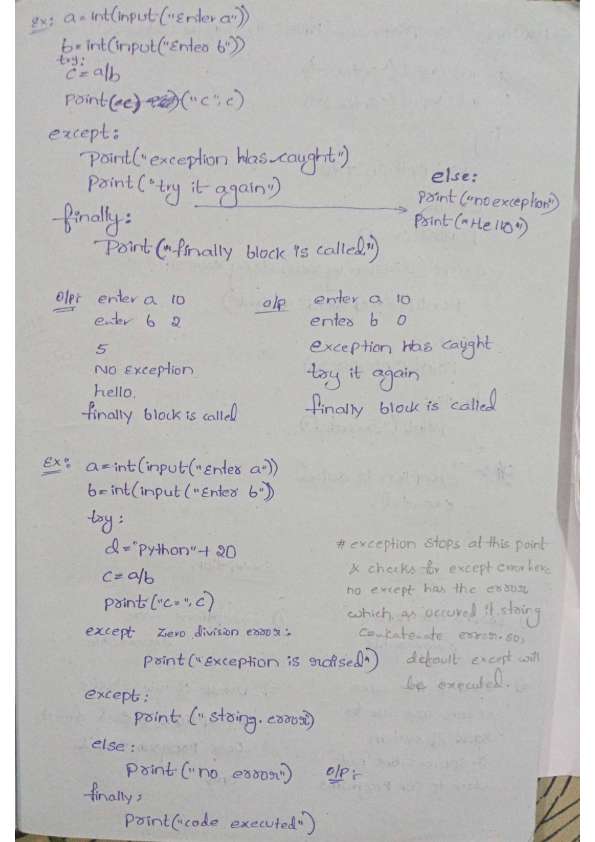 Ex: a=int(input("Enter a"))
b=int(input("Enter b"))
try:
c=a/b
Print("c", c)
except:
Print("exception Has caught")
Print("try it again")
else:
Print("no exception")
Print("Hello")
finally:
Print("finally block is called")
o/p: enter a 10
enter b 2
5
NO Exception
hello.
finally block is called
o/p enter a 10
enter b 0
exception Has caught
try it again
finally block is called
Ex: a=int(input("Enter a"))
b=int(input("Enter b"))
try:
d="Python"+20
c=a/b
print("c=", c)
except Zero division error:
print("Exception is raised")
except:
print ("string. error)
else:
Print("no error")
finally:
Print("code executed")
# exception stops at this point
& checks for except error here
no except has the error
which as occured i.e. string
Concatenate error. so,
default except will
be executed.
o/p:-